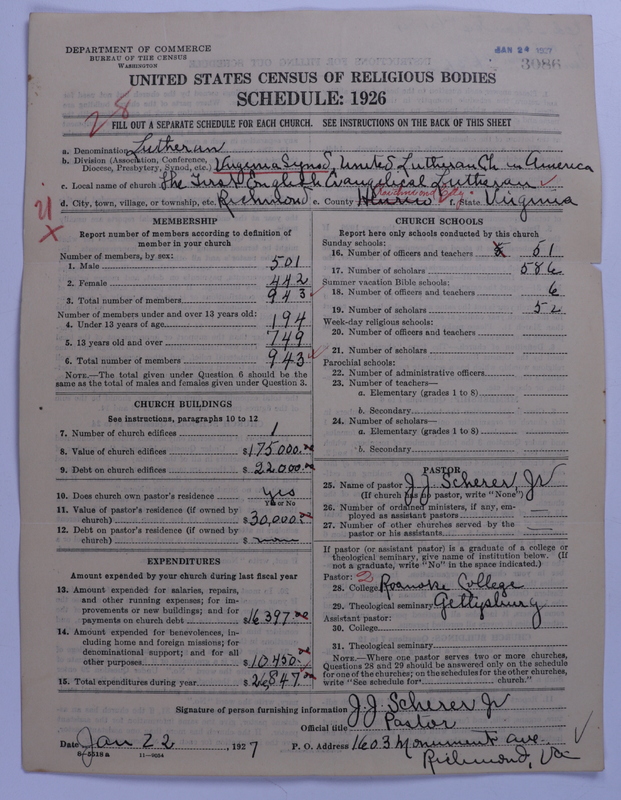 DEPARTMENT OF COMMERCE
BUREAU OF THE CENSUS
WASHINGTON
JAN 24 1927
3086
UNITED STATES CENSUS OF RELIGIOUS BODIES
SCHEDULE: 1926
28
FILL OUT A SEPARATE SCHEDULE FOR EACH CHURCH. SEE INSTRUCTIONS ON THE BACK OF THIS SHEET
a. Denomination Lutheran
b. Division (Association, Conference, Diocese, Presbytery, Synod, etc.) Virginia Synod, United Lutheran Ch in America
c. Local name of church The First English Evangelical Lutheran
Richmond City
d. City, town, village, or township, etc. Richmond e. County Henrico f. State Virginia
MEMBERSHIP
Report number of members according to definition of
member in your church
Number of members, by sex:
1. Male 501
2. Female 442
3. Total number of members 943
Number of members under and over 13 years old:
4. Under 13 years of age 194
5. 13 years old and over 749
6. Total number of members 943
NOTE.—The total given under Question 6 should be the
same as the total of males and females given under Question 3.
CHURCH BUILDINGS
See instructions, paragraphs 10 to 12
7. Number of church edifices 1
8. Value of church edifices $175000.00
9. Debt on church edifices $22000.00
10. Does church own pastor's residence yes
Yes or No
11. Value of pastor's residence (if owned by
church) $30,000.00
12. Debt on pastor's residence (if owned by
church) $ none
EXPENDITURES
Amount expended by your church during last fiscal year
13. Amount expended for salaries, repairs,
and other running expenses; for im-
provements or new buildings; and for
payments on church debt $16397.00
14. Amount expended for benevolences, in-
cluding home and foreign missions; for
denominational support; and for all
other purposes $10450.00
15. Total expenditures during year $26,847.00
CHURCH SCHOOLS
Report here only schools conducted by this church
Sunday schools:
16. Number of officers and teachers 51
17. Number of scholars 586
Summer vacation Bible schools:
18. Number of officers and teachers 6
19. Number of scholars 52
Week-day religious schools:
20. Number of officers and teachers
21. Number of scholars
Parochial schools:
22. Number of administrative officers
23. Number of teachers—
a. Elementary (grades 1 to 8)
b. Secondary
24. Number of scholars—
a. Elementary (grades 1 to 8)
b. Secondary
PASTOR
25. Name of pastor J.J. Scherer Jr
(If church has no pastor, write "None")
26. Number of ordained ministers, if any, em-
ployed as assistant pastors —
27. Number of other churches served by the
pastor or his assistants —
If pastor (or assistant pastor) is a graduate of a college or
theological seminary, give name of institution below. (If
not a graduate, write "No" in the space indicated.)
Pastor: 2
28. College Roanoke College
29. Theological seminary Gettysburg
Assistant pastor:
30. College
31. Theological seminary
NOTE.—Where one pastor serves two or more churches,
Questions 28 and 29 should be answered only on the schedule
for one of the churches; on the schedules for the other churches,
write "See schedule for church."
Signature of person furnishing information J.J. Scherer Jr
Official title Pastor
Date Jan 22, 1927 P. O. Address 1603 Monument ave.
Richmond, Va
8—5518 a 11—9054